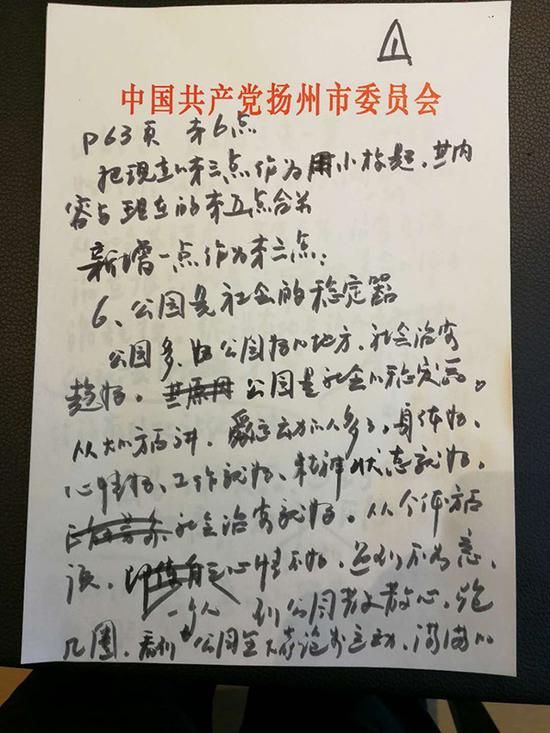 1
中国共产党扬州市委员会
P63页 第6点
把现在的第三点作为用小标题,其内
容与现在的第五点合并
新增一点作为第三点:
6、公园是社会的稳定器
公园多、好公园好的地方,社会治安
趋好。公园是社会的稳定器。
从大的方面讲,爱运动的人多了,身体好,
心情好,工作就好,精神状态就好,
社会治安就好。从个体方面
讲,心情不好,遇到不如意,
一个人 到公园散散心,跑
几圈,看到公园里大家运动,满满的